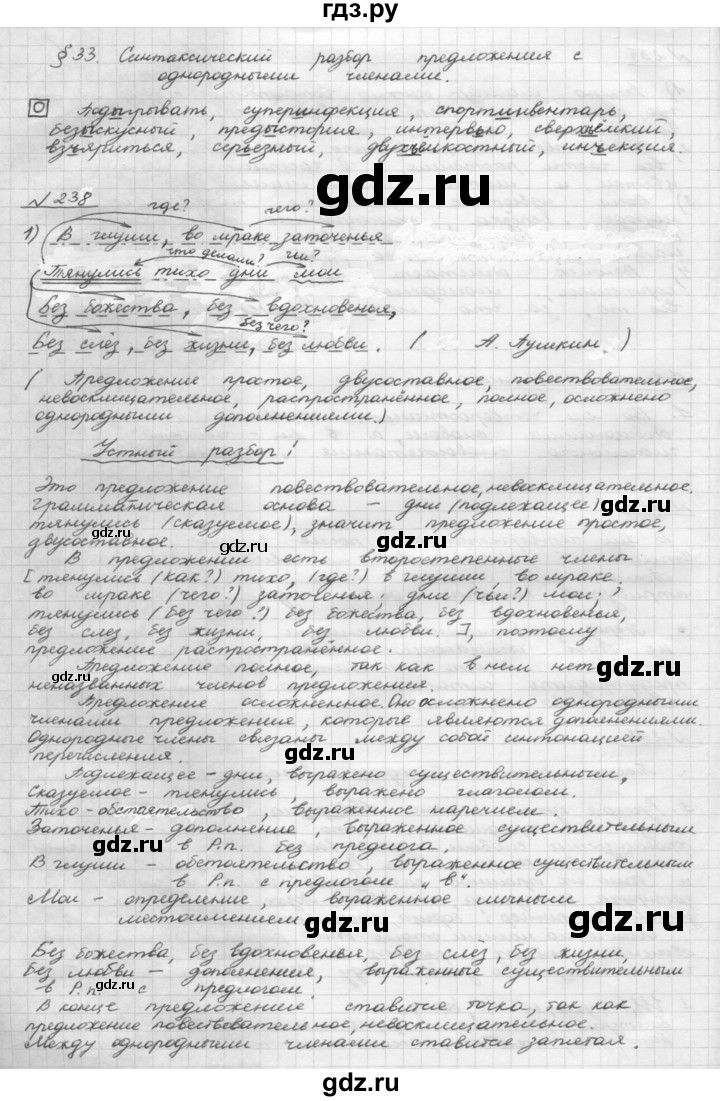 гдз.ру
§ 33. Синтаксический разбор предложения с
однородными членами.
Подыгрывать, суперинфекция, спортинвентарь,
безыскусный, предыстория, интервью, сверхъёмкий,
взъяриться, серьезный, двухъякостный, инъекция.
gdz.ru
№ 238 где? чего?
1) В глуши, во мраке заточенья
что делали? чьи?
Тянулись тихо дни мои
Без божества, без вдохновенья,
без чего?
Без слёз, без жизни, без любви. ( А. Пушкин. )
( Предложение простое, двусоставное, повествовательное,
невосклицательное, распространённое, полное, осложнено
однородными дополнениями.)
gdz.ru
Устный разбор!
Это предложение повествовательное, невосклицательное.
Грамматическая основа – дни (подлежащее)
gdz.ru
тянулись (сказуемое), значит предложение простое,
двусоставное.
gdz.ru
В предложении есть второстепенные члены
[ тянулись (как?) тихо, (где?) в глуши, во мраке;
во мраке (чего?) заточенья; дни (чьи?) мои;
gdz.ru
тянулись (без чего?) без божества, без вдохновенья,
без слез, без жизни, без любви. ], поэтому
предложение распространённое.
Предложение полное, так как в нем нет
gdz.ru
gdz.ru
неназванных членов предложения.
Предложение осложненное. Оно осложнено однородными
членами предложения, которые являются дополнениями.
Однородные члены связаны между собой интонацией
gdz.ru
перечисления.
Подлежащее – дни, выражено существительным,
Сказуемое – тянулись, выражено глаголом.
gdz.ru
Тихо – обстоятельство, выраженное наречием.
Заточенья – дополнение, выраженное существительным
в Р.п. без предлога.
gdz.ru
В глуши – обстоятельство, выраженное существительным
в Р.п. с предлогом „в“.
Мои – определение, выраженное личным
местоимением
gdz.ru
gdz.ru
Без божества, без вдохновенья, без слёз, без жизни,
без любви – дополнения, выраженные существительным
в Р.п. с предлогом.
gdz.ru
gdz.ru
В конце предложения ставится точка, так как
предложение повествовательное, невосклицательное.
Между однородными членами ставится запятая.
gdz.ru